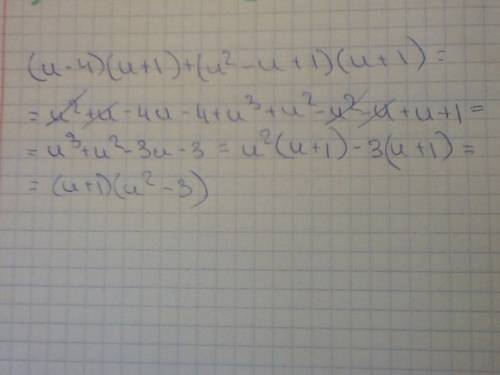 (u-4)(u+1)+(u²-u+1)(u+1)=
=u²+u-4u-4+u³+u²-u²-u+u+1=
=u³+u²-3u-3=u²(u+1)-3(u+1)=
=(u+1)(u²-3)